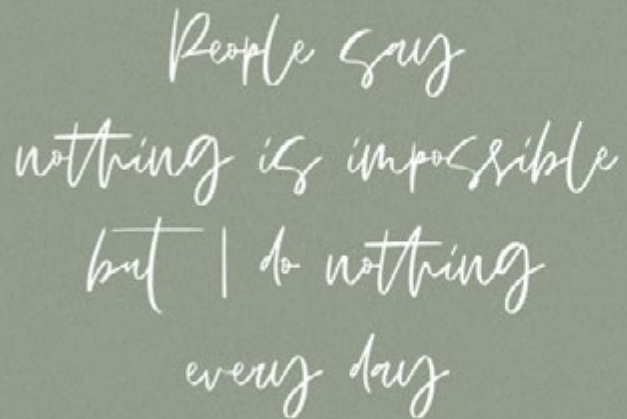 People say
nothing is impossible
but I do nothing
every day